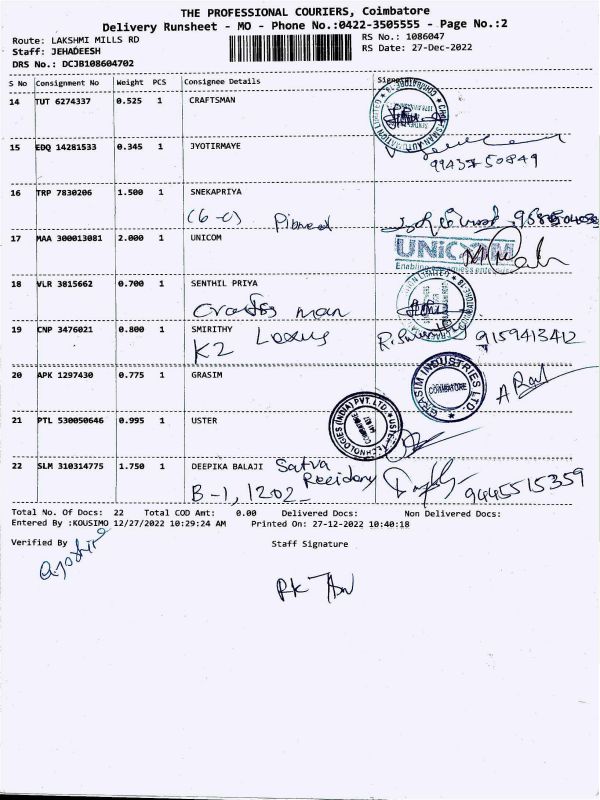 THE PROFESSIONAL COURIERS, Coimbatore
Delivery Runsheet - MO - Phone No.:0422-3505555 - Page No.:2
Route: LAKSHMI MILLS RD
RS No.: 1086047
Staff: JEHADEESH
RS Date: 27-Dec-2022
DRS No.: DCJB108604702
S No Consignment No Weight PCS Consignee Details Signature
14 TUT 6274337 0.525 1 CRAFTSMAN
CRAFTSMAN AUTOMATION LIMITED
15 EDQ 14281533 0.345 1 JYOTIRMAYE
9943750849
16 TRP 7830206 1.500 1 SNEKAPRIYA
(6-c)
17 MAA 300013081 2.000 1 UNICOM
UNICOM
Enabling
18 VLR 3815662 0.700 1 SENTHIL PRIYA
Crafts man
19 CNP 3476021 0.800 1 SMIRITHY
K2
9159413412
20 APK 1297430 0.775 1 GRASIM
GRASIM INDUSTRIES LTD.
COIMBATORE
21 PTL 530050646 0.995 1 USTER
USTER TECHNOLOGIES (INDIA) PVT. LTD.
22 SLM 310314775 1.750 1 DEEPIKA BALAJI
Satva
B-1, 1202
9445515359
Total No. Of Docs: 22 Total COD Amt: 0.00 Delivered Docs: Non Delivered Docs:
Entered By :KOUSIMO 12/27/2022 10:29:24 AM Printed On: 27-12-2022 10:40:18
Verified By Staff Signature